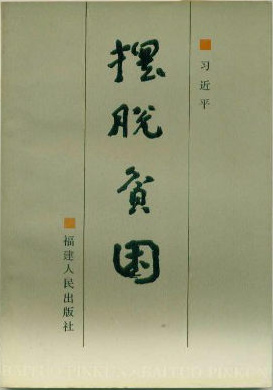 习近平
摆脱贫困
福建人民出版社
BAITUO PINKUN BAITUO PINKUN